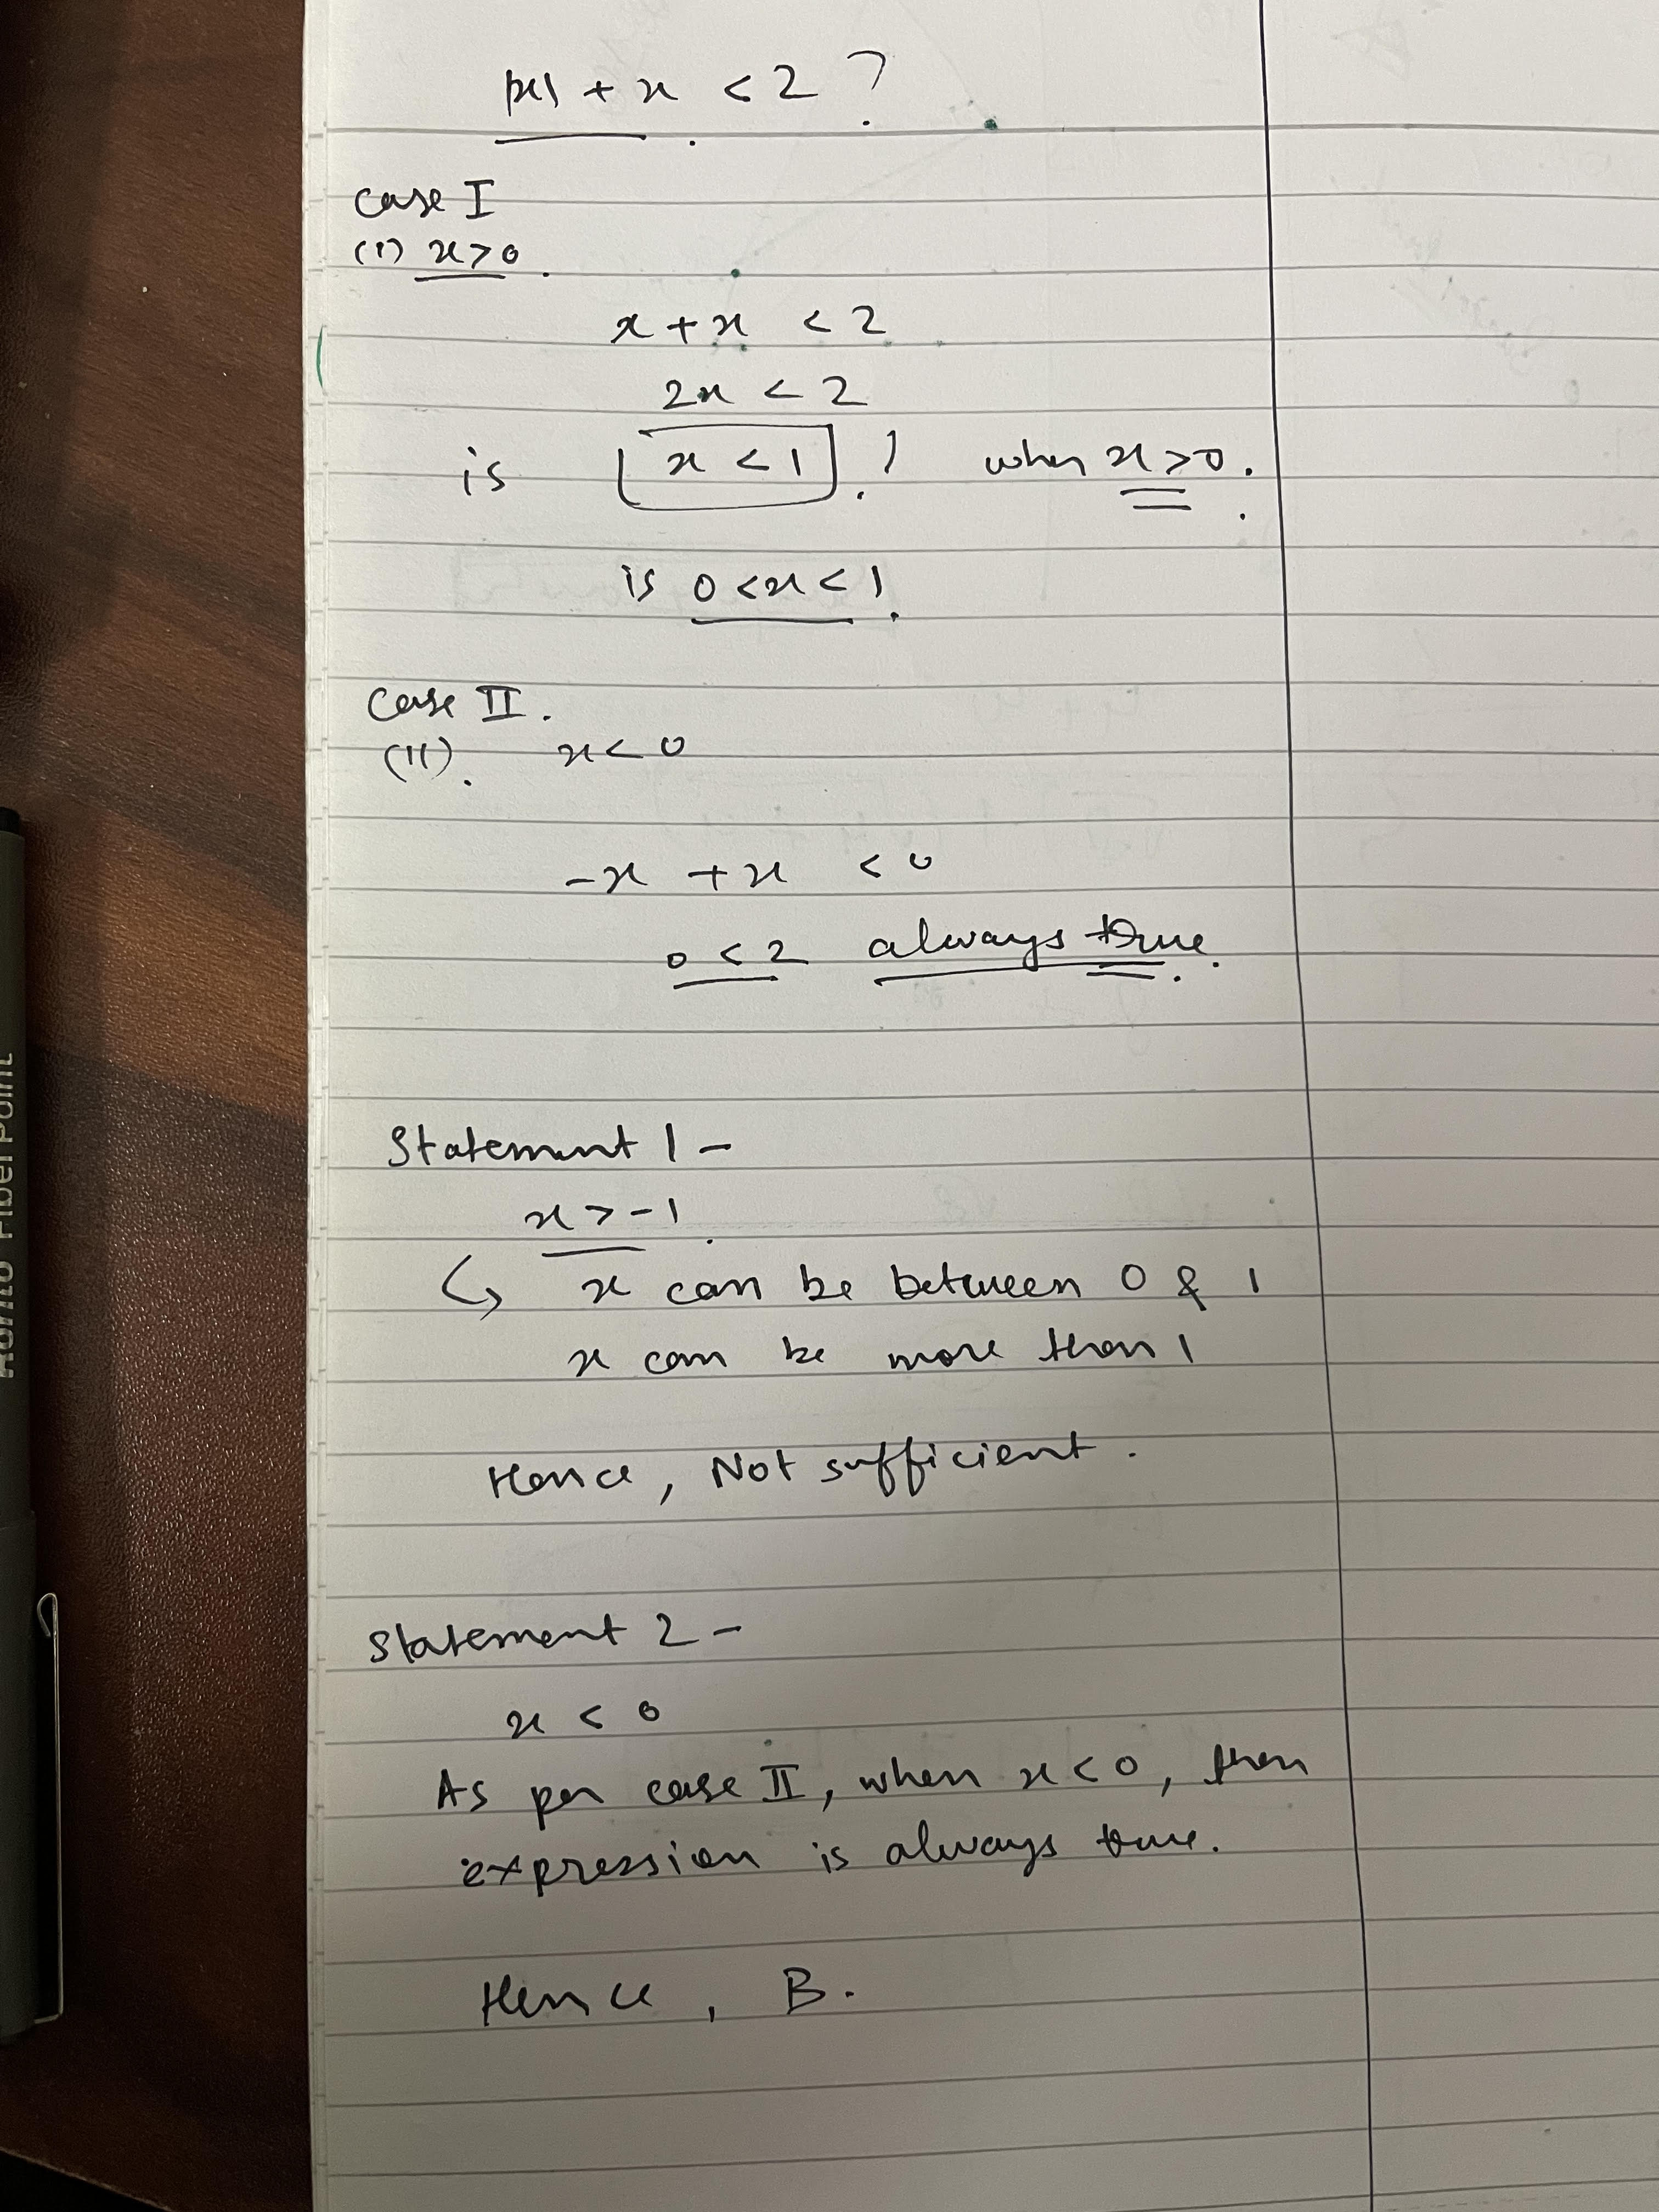 |x| + x < 2 ?
Case I
(I) x>0.
x + x < 2
2x < 2
is x < 1 ? when x>0.
is 0 <x< 1.
Case II.
(II). x< 0
-x + x < 0
0 < 2 always true.
Statement 1 -
x > -1
↳ x can be between 0 & 1
x can be more than 1
Hence, Not sufficient.
Statement 2 -
x < 0
As per case II, when x<0, then
expression is always true.
Hence, B.
Fiber Point